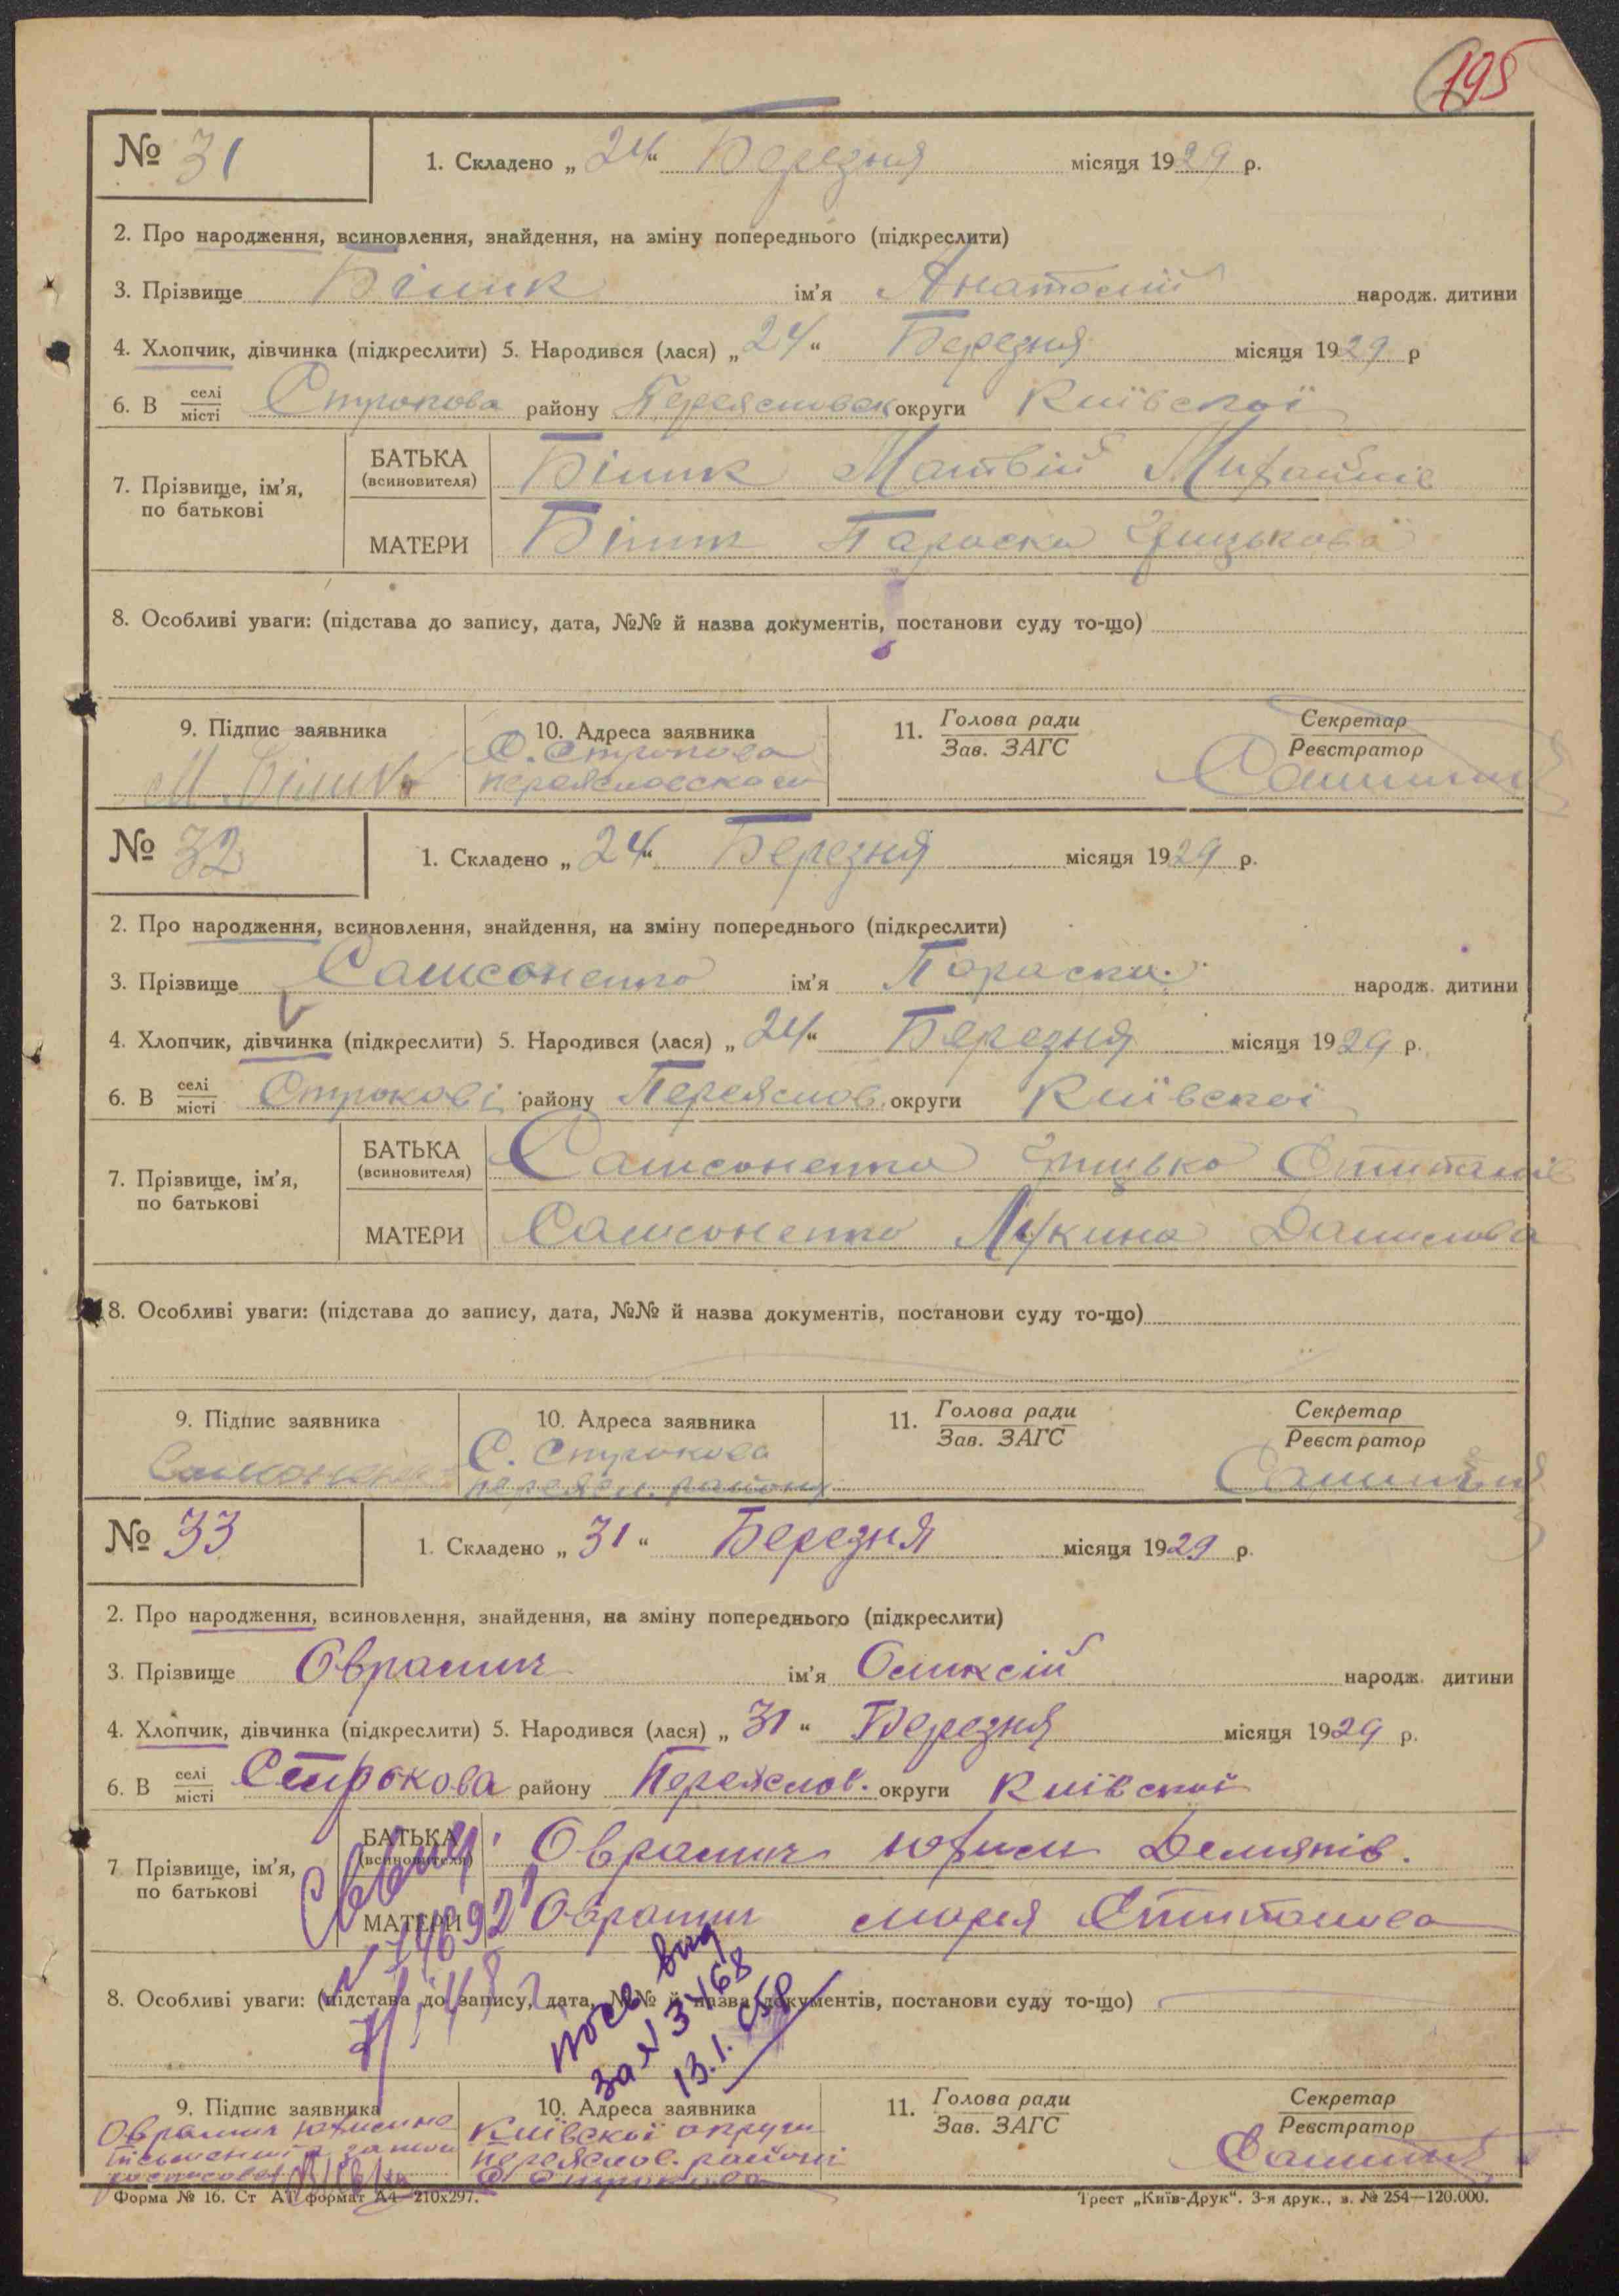 195
№ 31
1. Складено „ 24 “ Березня місяця 1929 р.
2. Про народження, всиновлення, знайдення, на зміну попереднього (підкреслити)
3. Прізвище Білик ім'я Анатолій народж. дитини
4. Хлопчик, дівчинка (підкреслити) 5. Народився (лася) „ 24 “ Березня місяця 1929 р
6. В селі/місті Строкова району Переяславск округи Київської
7. Прізвище, ім'я, по батькові
БАТЬКА (всиновителя) Білик Матвій Михайлів
МАТЕРИ Білик Параска Грицькова
8. Особливі уваги: (підстава до запису, дата, №№ й назва документів, постанови суду то-що)
9. Підпис заявника 10. Адреса заявника 11. Голова ради/Зав. ЗАГС Секретар/Реєстратор
М Білик С. Строкова
№ 32
1. Складено „ 24 “ Березня місяця 1929 р.
2. Про народження, всиновлення, знайдення, на зміну попереднього (підкреслити)
3. Прізвище Самсоненко ім'я Параска народж. дитини
4. Хлопчик, дівчинка (підкреслити) 5. Народився (лася) „ 24 “ Березня місяця 1929 р.
6. В селі/місті Строкові району Переяслов. округи Київскої
7. Прізвище, ім'я, по батькові
БАТЬКА (всиновителя) Самсоненко Грицько
МАТЕРИ Самсоненко Лукина Данилова
8. Особливі уваги: (підстава до запису, дата, №№ й назва документів, постанови суду то-що)
9. Підпис заявника 10. Адреса заявника 11. Голова ради/Зав. ЗАГС Секретар/Реєстратор
С. Строкова
переясл. району
№ 33
1. Складено „ 31 “ Березня місяця 1929 р.
2. Про народження, всиновлення, знайдення, на зміну попереднього (підкреслити)
3. Прізвище Оврамич ім'я Оликсій народж. дитини
4. Хлопчик, дівчинка (підкреслити) 5. Народився (лася) „ 31 “ Березня місяця 1929 р.
6. В селі/місті Строкова району Переяслов. округи Київскої
7 Прізвище, ім'я, по батькові
БАТЬКА (всиновителя) Оврамич Юхим Демянів.
МАТЕРИ Оврамич Мария
8. Особливі уваги: (підстава до запису, дата, №№ й назва документів, постанови суду то-що)
13.1.
9. Підпис заявника 10. Адреса заявника 11. Голова ради/Зав. ЗАГС Секретар/Реєстратор
Оврамич Київскої округи
Переяслов. району
С Строкова
Форма № 16. Ст А1 формат А4—210х297.
Трест „Київ-Друк“. 3-я друк., з. № 254—120.000.